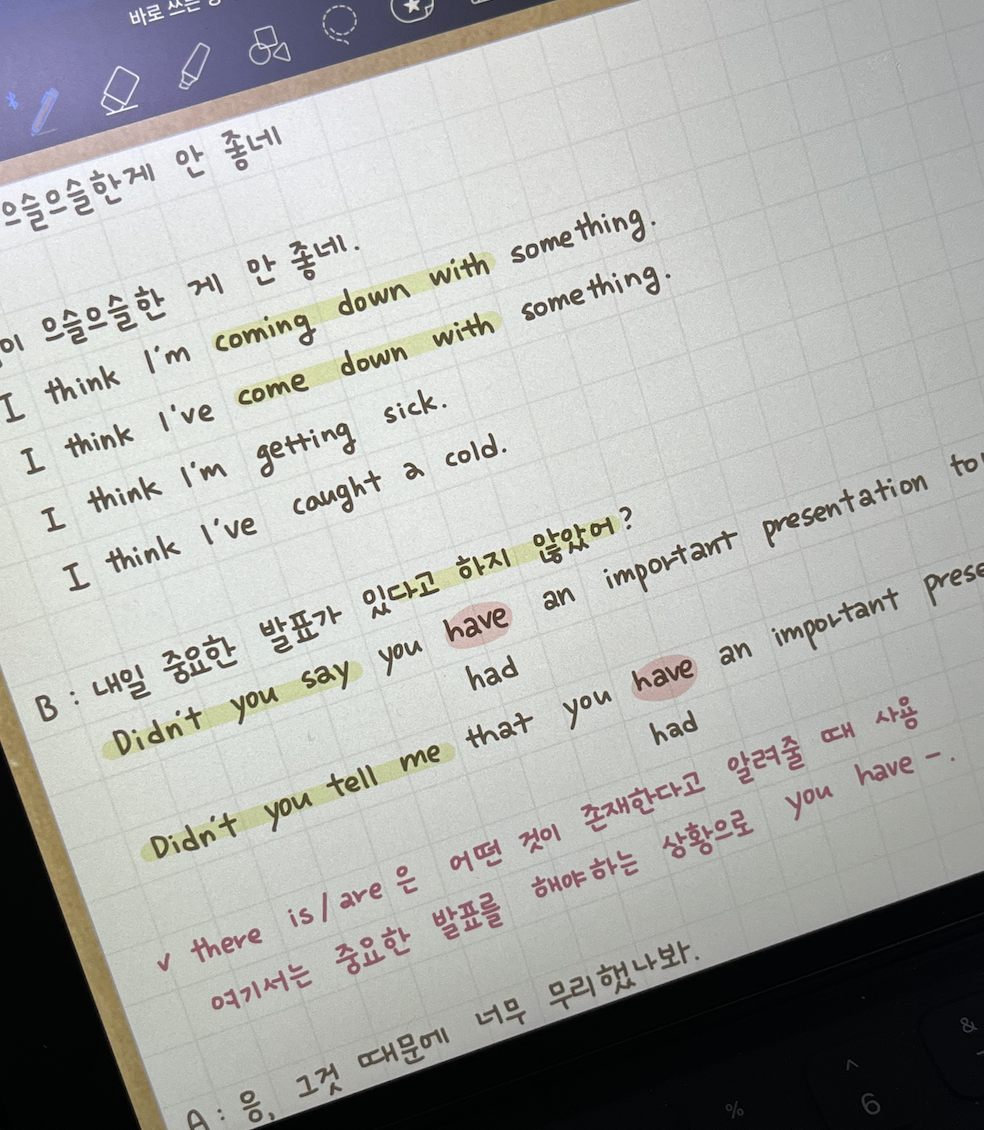 바로 쓰는
으슬으슬한게 안 좋네
이 으슬으슬한 게 안 좋네.
I think I'm coming down with something.
I think I've come down with something.
I think I'm getting sick.
I think I've caught a cold.
B : 내일 중요한 발표가 있다고 하지 않았어?
Didn't you say you have an important presentation
had
Didn't you tell me that you have an important
had
✓ there is / are 은 어떤 것이 존재한다고 알려줄 때 사용
여기서는 중요한 발표를 해야하는 상황으로 you have -.
A : 응, 그것 때문에 너무 무리했나봐.
&
^
6
%